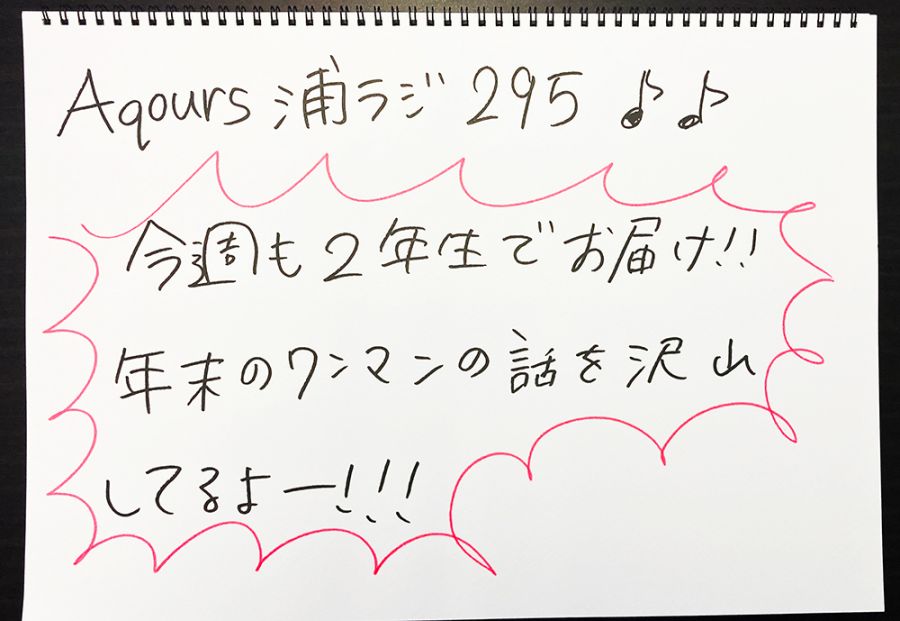 Aqours 浦ラジ 295 ♪♪
今週も2年生でお届け!!
年末のワンマンの話を沢山
してるよー!!!